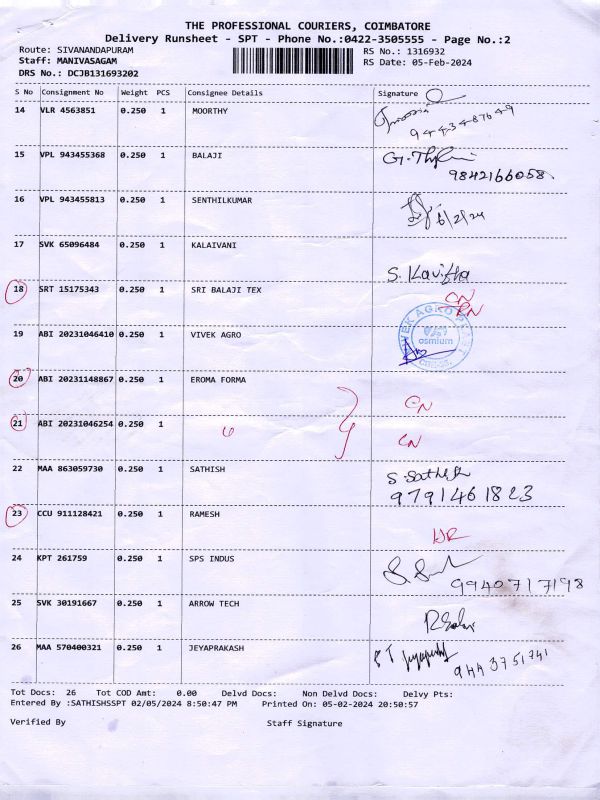 THE PROFESSIONAL COURIERS, COIMBATORE
Delivery Runsheet - SPT - Phone No.:0422-3505555 - Page No.:2
Route: SIVANANDAPURAM RS No.: 1316932
Staff: MANIVASAGAM RS Date: 05-Feb-2024
DRS No.: DCJB131693202
S No Consignment No Weight PCS Consignee Details Signature
14 VLR 4563851 0.250 1 MOORTHY
9443487649
15 VPL 943455368 0.250 1 BALAJI
9842166058
16 VPL 943455813 0.250 1 SENTHILKUMAR 6/2/24
17 SVK 65096484 0.250 1 KALAIVANI
S. Kavitha
18 SRT 15175343 0.250 1 SRI BALAJI TEX CN
19 ABI 20231046410 0.250 1 VIVEK AGRO
VIVEK AGRO
osmium
20 ABI 20231148867 0.250 1 EROMA FORMA
CN
21 ABI 20231046254 0.250 1
CN
22 MAA 863059730 0.250 1 SATHISH S. Sathish
9791461823
23 CCU 911128421 0.250 1 RAMESH
24 KPT 261759 0.250 1 SPS INDUS
9940717198
25 SVK 30191667 0.250 1 ARROW TECH
26 MAA 570400321 0.250 1 JEYAPRAKASH
9443751741
Tot Docs: 26 Tot COD Amt: 0.00 Delvd Docs: Non Delvd Docs: Delvy Pts:
Entered By :SATHISHSSPT 02/05/2024 8:50:47 PM Printed On: 05-02-2024 20:50:57
Verified By Staff Signature